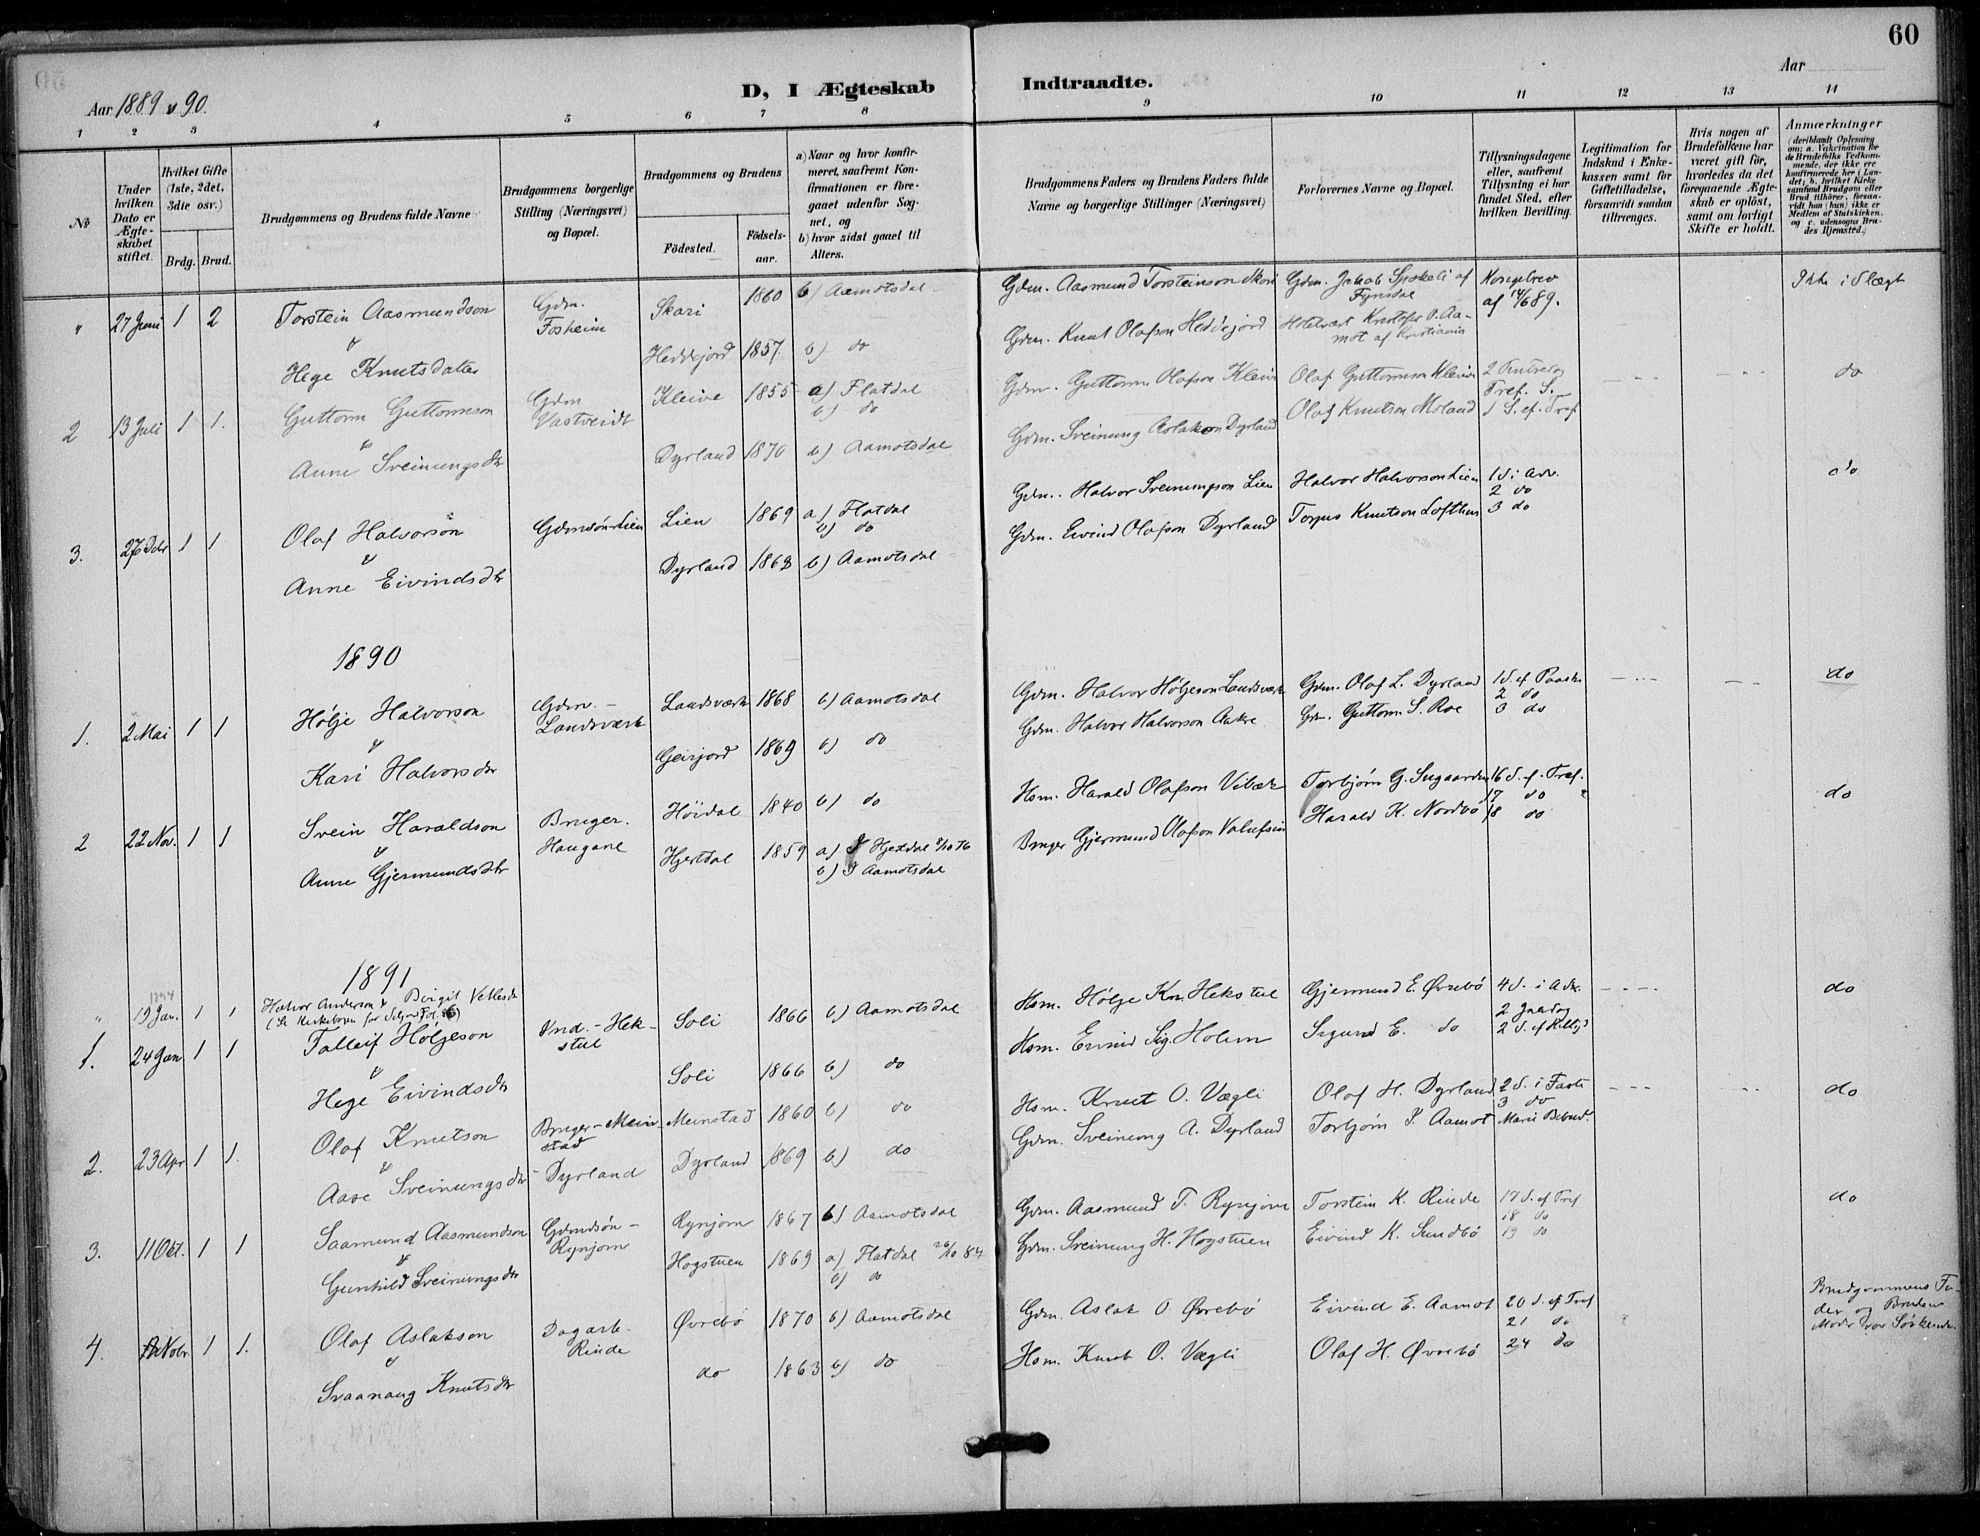 60
Aar 1889 & 90.
D, I Ægteskab Indtraadte.
Aar
1 2 3 4 5 6 7 8 9 10 11 12 13 14
No
Under hvilken Dato er Ægteskabet stiftet.
Hvilket Gifte (1ste, 2det, 3die osv.)
Brdg. Brud.
Brudgommens og Brudens fulde Navne
Brudgommens borgerlige Stilling (Næringsvei) og Bopæl.
Brudgommens og Brudens
Födested. Födselsaar.
a) Naar og hvor konfirmeret, saafremt Konfirmationen er foregaaet udenfor Sognet, og
b) hvor sidst gaaet til Alters.
Brudgommens Faders og Brudens Faders fulde Navne og borgerlige Stillinger (Næringsvei)
Forlovernes Navne og Bopæl.
Tillysningsdagene eller, saafremt Tillysning ei har fundet Sted, efter hvilken Bevilling.
Legitimation for Indskud i Enkekassen samt for Giftetilladelse, forsaavidt saadan tiltrænges.
Hvis nogen af Brudefolkene har været gift för, hvorledes da det foregaaende Ægteskab er oplöst, samt om lovligt Skifte er holdt.
Anmærkninger
(deriblandt Oplysning om: a. Vakcination for de Brudefolks Vedkommende, der ikke ere konfirmerede her i Landet; b. hvilket Kirkesamfund Brudgom eller Brud tilhörer, forsaavidt han (hun) ikke er Medlem af Statskirken, og c. udensogns Brudes Hjemsted.)
" 27 Juni 1 2 Torstein Aasmundson Gdm. Fosheim Skari 1860 b) Aamotsdal Gdm. Aasmund Torsteinson Skori Gdm. Jakob Spokeli af Fyrisdal Kongebrev af 14/6 89. Ikke i Slægt
& Hege Knutsdatter Heddejord 1857. b) do Gdm. Knut Olafson Heddejord Hotelvært Kristofer O. Aamot af Kristiania
2 13 Juli 1 1. Guttorm Guttormson Gdm Vastveidt Kleive 1855 a) Flatdal b) do Gdm. Guttorm Olafson Kleive Olaf Guttormson Kleive 2 Tref. S. do
& Anne Sveinungsdtr Dyrland 1870 b) Aamotsdal Gdm. Sveinung Aslakson Dyrland Olaf Knutson Moland 1 S. ef. Tref
3. 27 Dcbr 1 1 Olaf Halvorson Gdmssön-Lien Lien 1869 a) Flatdal b) do Gdm. Halvor Sveinungson Lien Halvor Halvorson Lien 1 S. i Adv. 2 do 3 do do
& Anne Eivindsdtr Dyrland 1863 b) Aamotsdal Gdm. Eivind Olafson Dyrland Torjus Knutson Lofthus
1890
1. 2 Mai 1 1 Hölje Halvorson Gdm. - Landsværk Landsværk 1868 b) Aamotsdal Gdm. Halvor Höljeson Landsværk Gdm. Olaf L. Dyrland 1 S. ef Paaske 2 do 3 do do
& Kari Halvorsdtr Geirjord 1869 b) do Gdm. Halvor Halvorson Aakre Gdm. Guttorm S. Roe
2 22 Nov. 1 1 Svein Haraldson Bruger. Haugane Höidal 1840 b) do Hsm. Harald Olafson Vibæk Torbjörn G. Sugaarden 16 S. ef. Tref. 17 do 18 do do
& Anne Gjermundsdtr Hjertdal 1859 a) I Hjertdal 8/10 76 b) I Aamotsdal Bruger Gjermund Olafson Harald K. Nordbö
1891
" 19 Jan. 1 1 Halvor Anderson & Birgit Vetlesdtr (Se Kirkebogen for Seljord Fol. 86)
1. 24 Jan 1 1 Talleif Höljeson Ind. - Hekstul Soli 1866 b) Aamotsdal Hsm. Hölje Kn. Hekstul Gjermund E. Øvrebö 4 S. i Adv. 2 Juledag 2 S. ef Helt.3 do
& Hege Eivindsdtr Soli 1866 b) do Hsm. Eivind Sig. Holem Sigurd E. do
2. 23 Apr 1 1. Olaf Knutson Bruger - Meinstad Meinstad 1860 b) do Hsm. Knut O. Vægli Olaf H. Dyrland 2 S. i Faste 3 do Mariæ Bebud. do
& Aase Sveinungsdtr - Dyrland Dyrland 1869 b) do Gdm. Sveinung A. Dyrland Torbjörn P. Aamot
3. 11 Okt. 1 1 Saamund Aasmundson Gdmdsön - Rynjorn Rynjorn 1867 b) Aamotsdal Gdm. Aasmund T. Rynjorn Torstein K. Rinde 17 S. ef Tref 18 do 19 do do
& Gunhild Sveinungsdtr Hogstuen 1869 a) Flatdal 26/10 84 b) do Gdm. Sveinung H. Hogstuen Eivind K. Sundbö
4. Nobr. 1 1. Olaf Aslakson Dagarb. Rinde Øvrebö 1870 b) Aamotsdal Gdm. Aslak O. Øvrebö Eivind E. Aamot 20 S. ef Tref 21 do 24 do Brudgommens Fader og Brudens Moder var Söskende.
& Svaanaug Knutsdtr do 1863 b) do Hsm. Knut O. Vægli Olaf H. Øvrebö